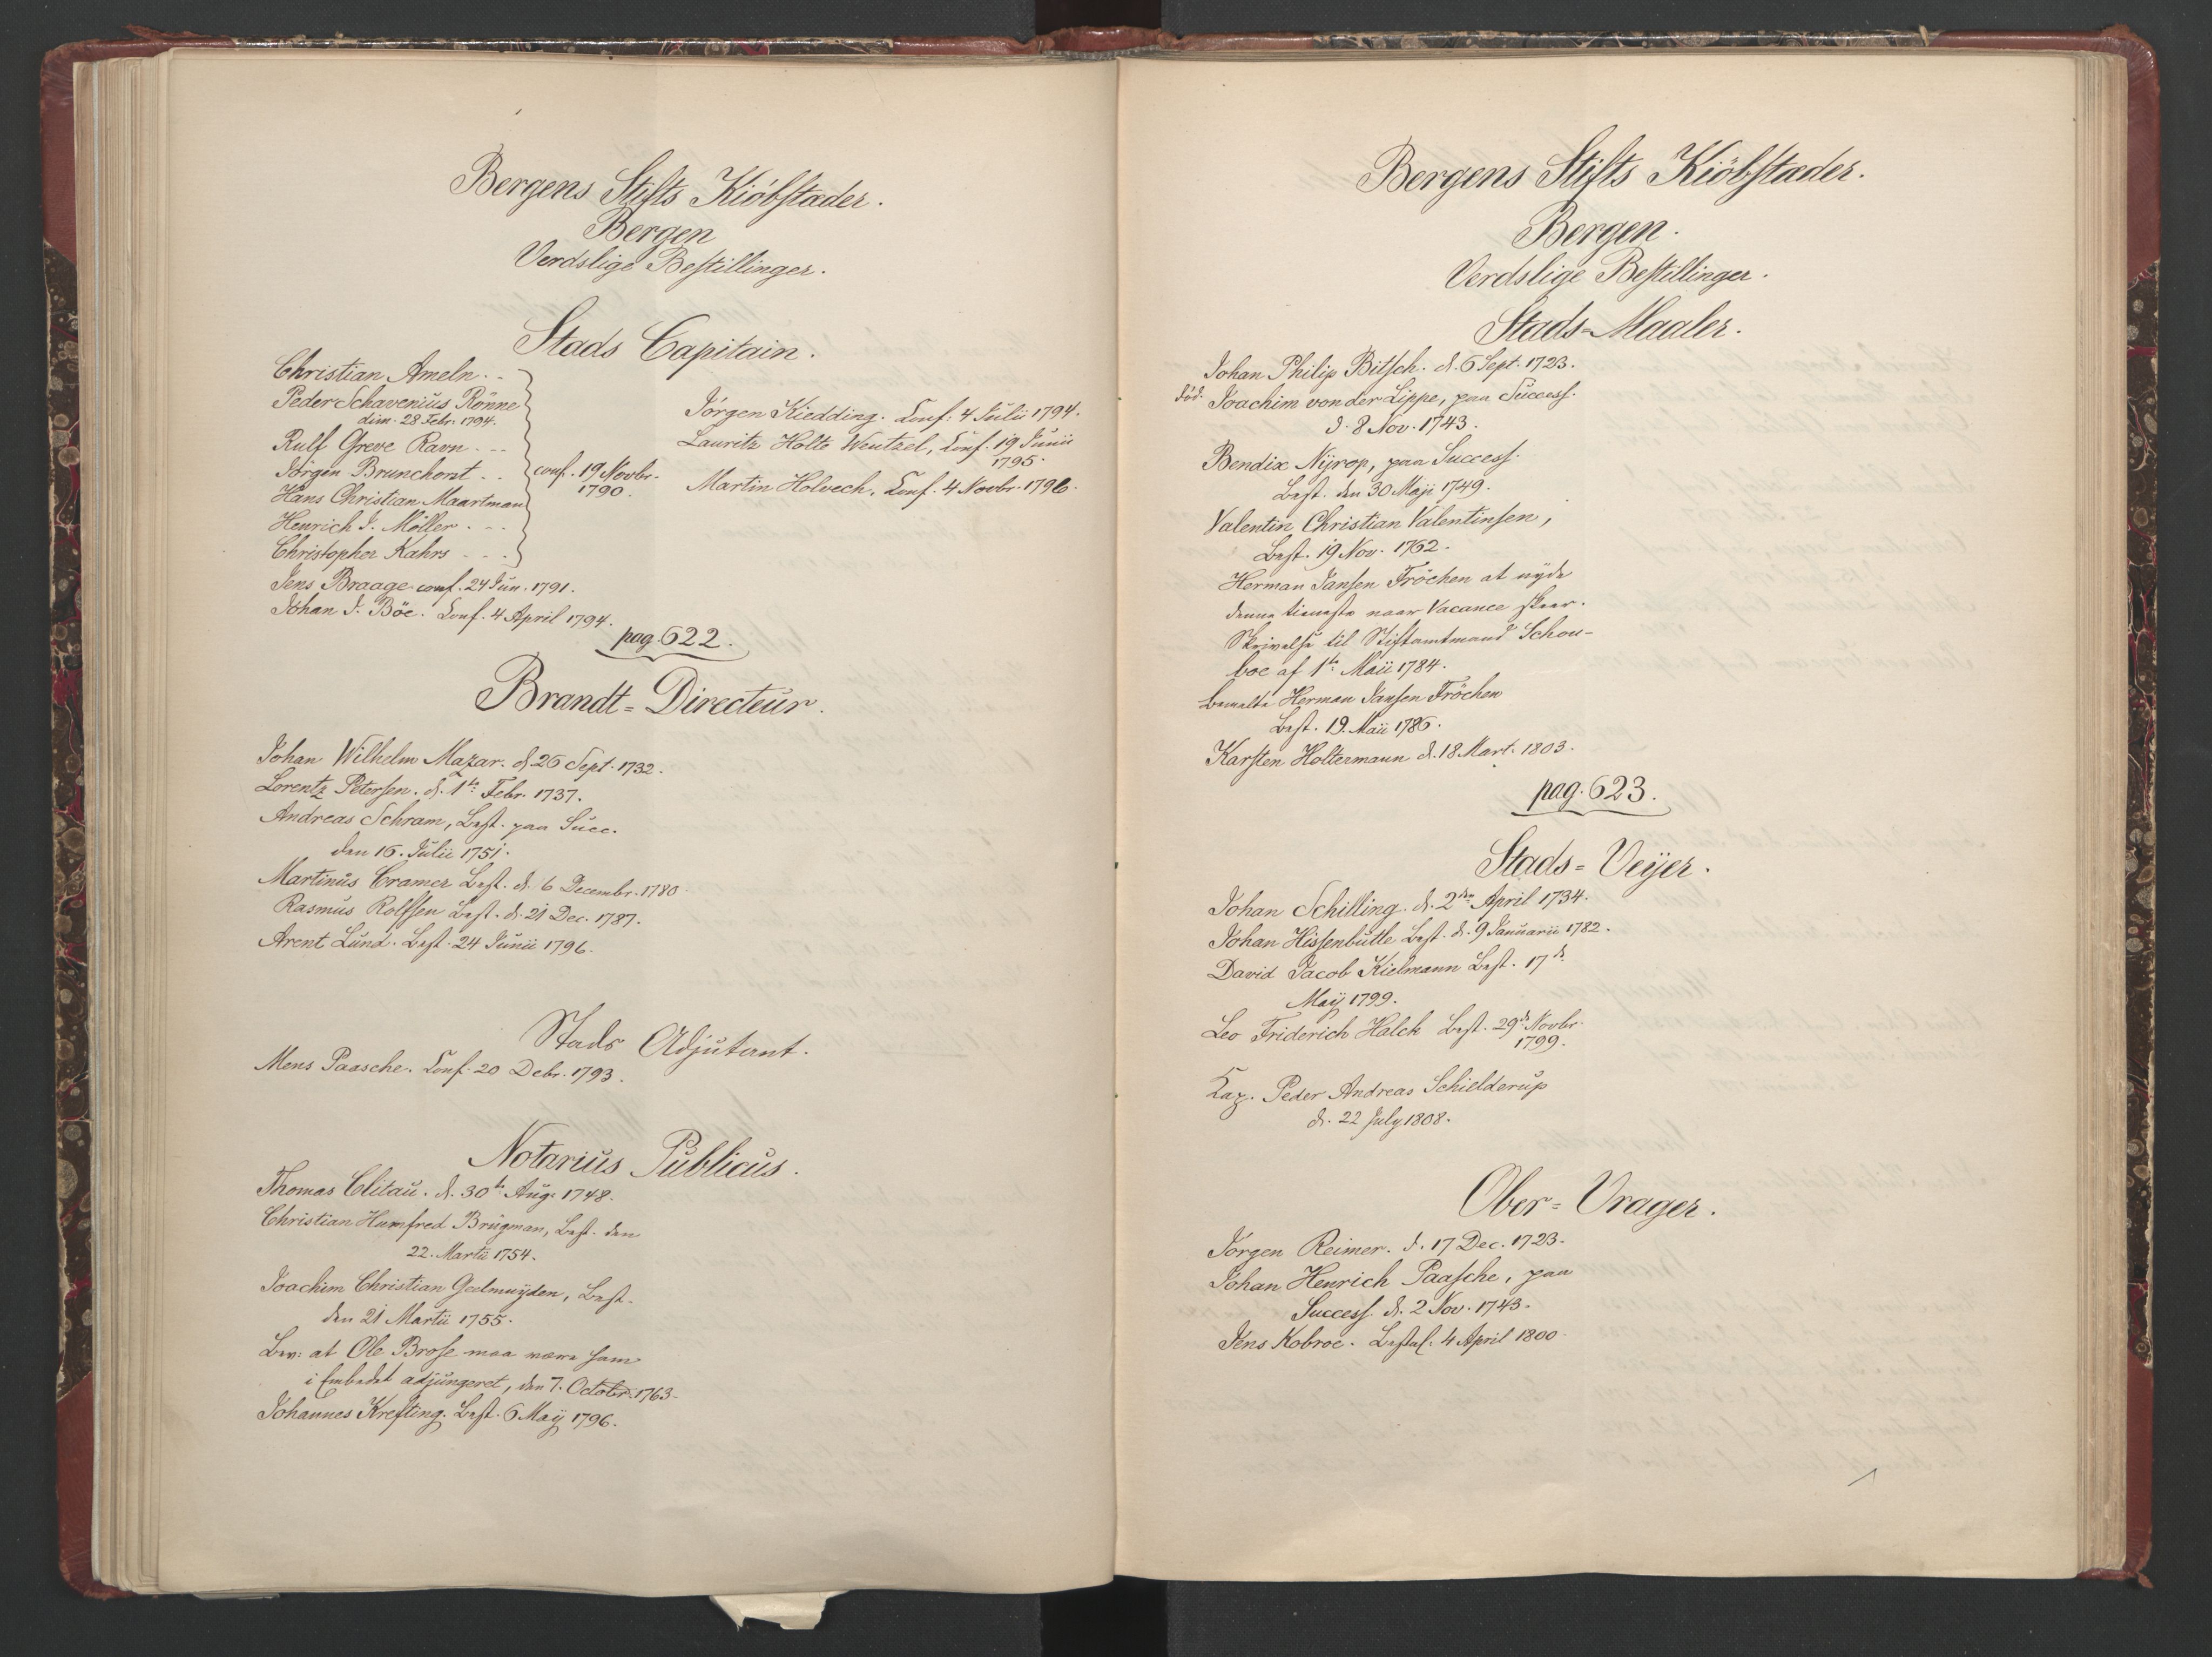 Bergens Stifts Kiöbstæder.
Bergen
Verdslige Bestillinger.
Stads Capitain.
Christian Ameln. -
Peder Schavenius Rönne
dim. 28 Febr. 1794.
Rulf Greve Ravn. - -
Jörgen Brunchorst - -
Hans Christian Maartman
Henrich J. Möller. - -
Christopher Kahrs - - -
conf. 19 Novbr.
1790.
Jens Braage conf. 24 Jun. 1791.
Johan J. Böe. Conf. 4 April 1794.
Jörgen Kiedding. Conf: 4 Julii 1794.
Lauritz Holte Wentzel, Conf. 19 Junii
1795.
Martin Holvech. Conf. 4 Novbr. 1796.
pag. 622.
Brandt=Directeur.
Johan Wilhelm Mazar. d. 26 Sept. 1732.
Lorentz Petersen. d. 1te Febr. 1737.
Andreas Schram, Best. paa Succ.
den 16. Julii 1751.
Martinus Cramer Best. d. 6 Decembr. 1780.
Rasmus Rolfsen Best. d. 21 Dec. 1787.
Arent Lund. Best. 24 Junii 1796.
Stads Adjutant.
Mens Paasche. Conf. 20 Debr. 1793.
Notarius Publicus.
Thomas Clitau. d. 30te Aug. 1748.
Christian Humfred Brügman, Best. den
22. Martii 1754.
Joachim Christian Geelmuÿden, Best.
den 21 Martii 1755.
Bev: at Ole Brose maa være ham
i Embedet adjungeret, den 7. Octobr. 1763.
Johannes Krefting. Best. 6 Maÿ 1796.
Bergens Stifts Kiöbstæder.
Bergen.
Verdslige Bestillinger.
Stads=Maaler.
Johan Philip Bitsch. d. 6 Sept. 1723.
död. Joachim von der Lippe, paa Success.
d. 8 Nov. 1743.
Bendix Nÿrop, paa Success.
Best. den 30 Maji 1749.
Valentin Christian Valentinsen,
Best. 19 Nov. 1762.
Herman Jansen Fröchen at nÿde
denne tieneste naar Vacance skeer.
Skrivelse til Stiftamtmand Schou-
boe af 1te Maii 1784.
bemelte Herman Jansen Fröchen
Best. 19. Maii 1786.
Karsten Holtermann d. 18 Mart. 1803.
pag. 623.
Stads=Veÿer.
Johan Schilling. d. 2den April 1734.
Johan Hissenbutle Best. d. 9 Januarii 1782.
David Jacob Kielmann Best. 17de
Maÿ 1799.
Leo Friderich Halck Best. 29de Novbr.
1799.
Cap. Peder Andreas Schielderup
d. 22 July 1808.
Ober=Vrager.
Jörgen Reimer. d. 17 Dec. 1723.
Johan Henrich Paasche, paa
Success. d. 2 Nov. 1743.
Jens Kobroe. Bestal. 4 April 1800.